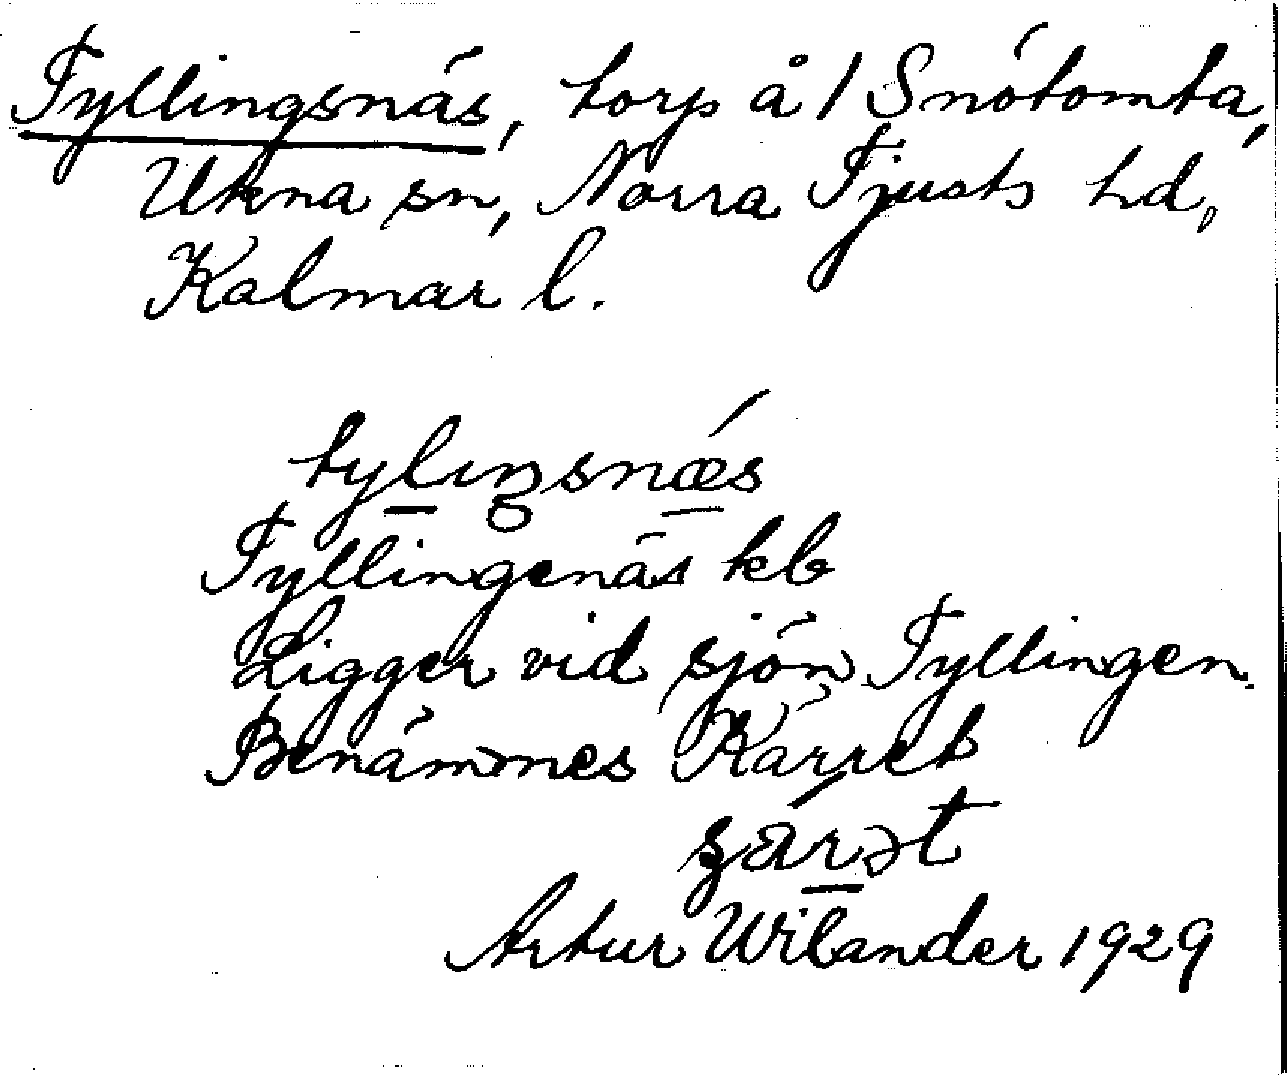 Tyllingsnäs, torp å 1 Snötomta,
Ukna sn, Norra Tjusts hd,
Kalmar l.
tylıŋsnǽs
Tyllingenäs kb
Ligger vid sjön Tyllingen.
Benämnes Kärret
Artur Wilander 1929